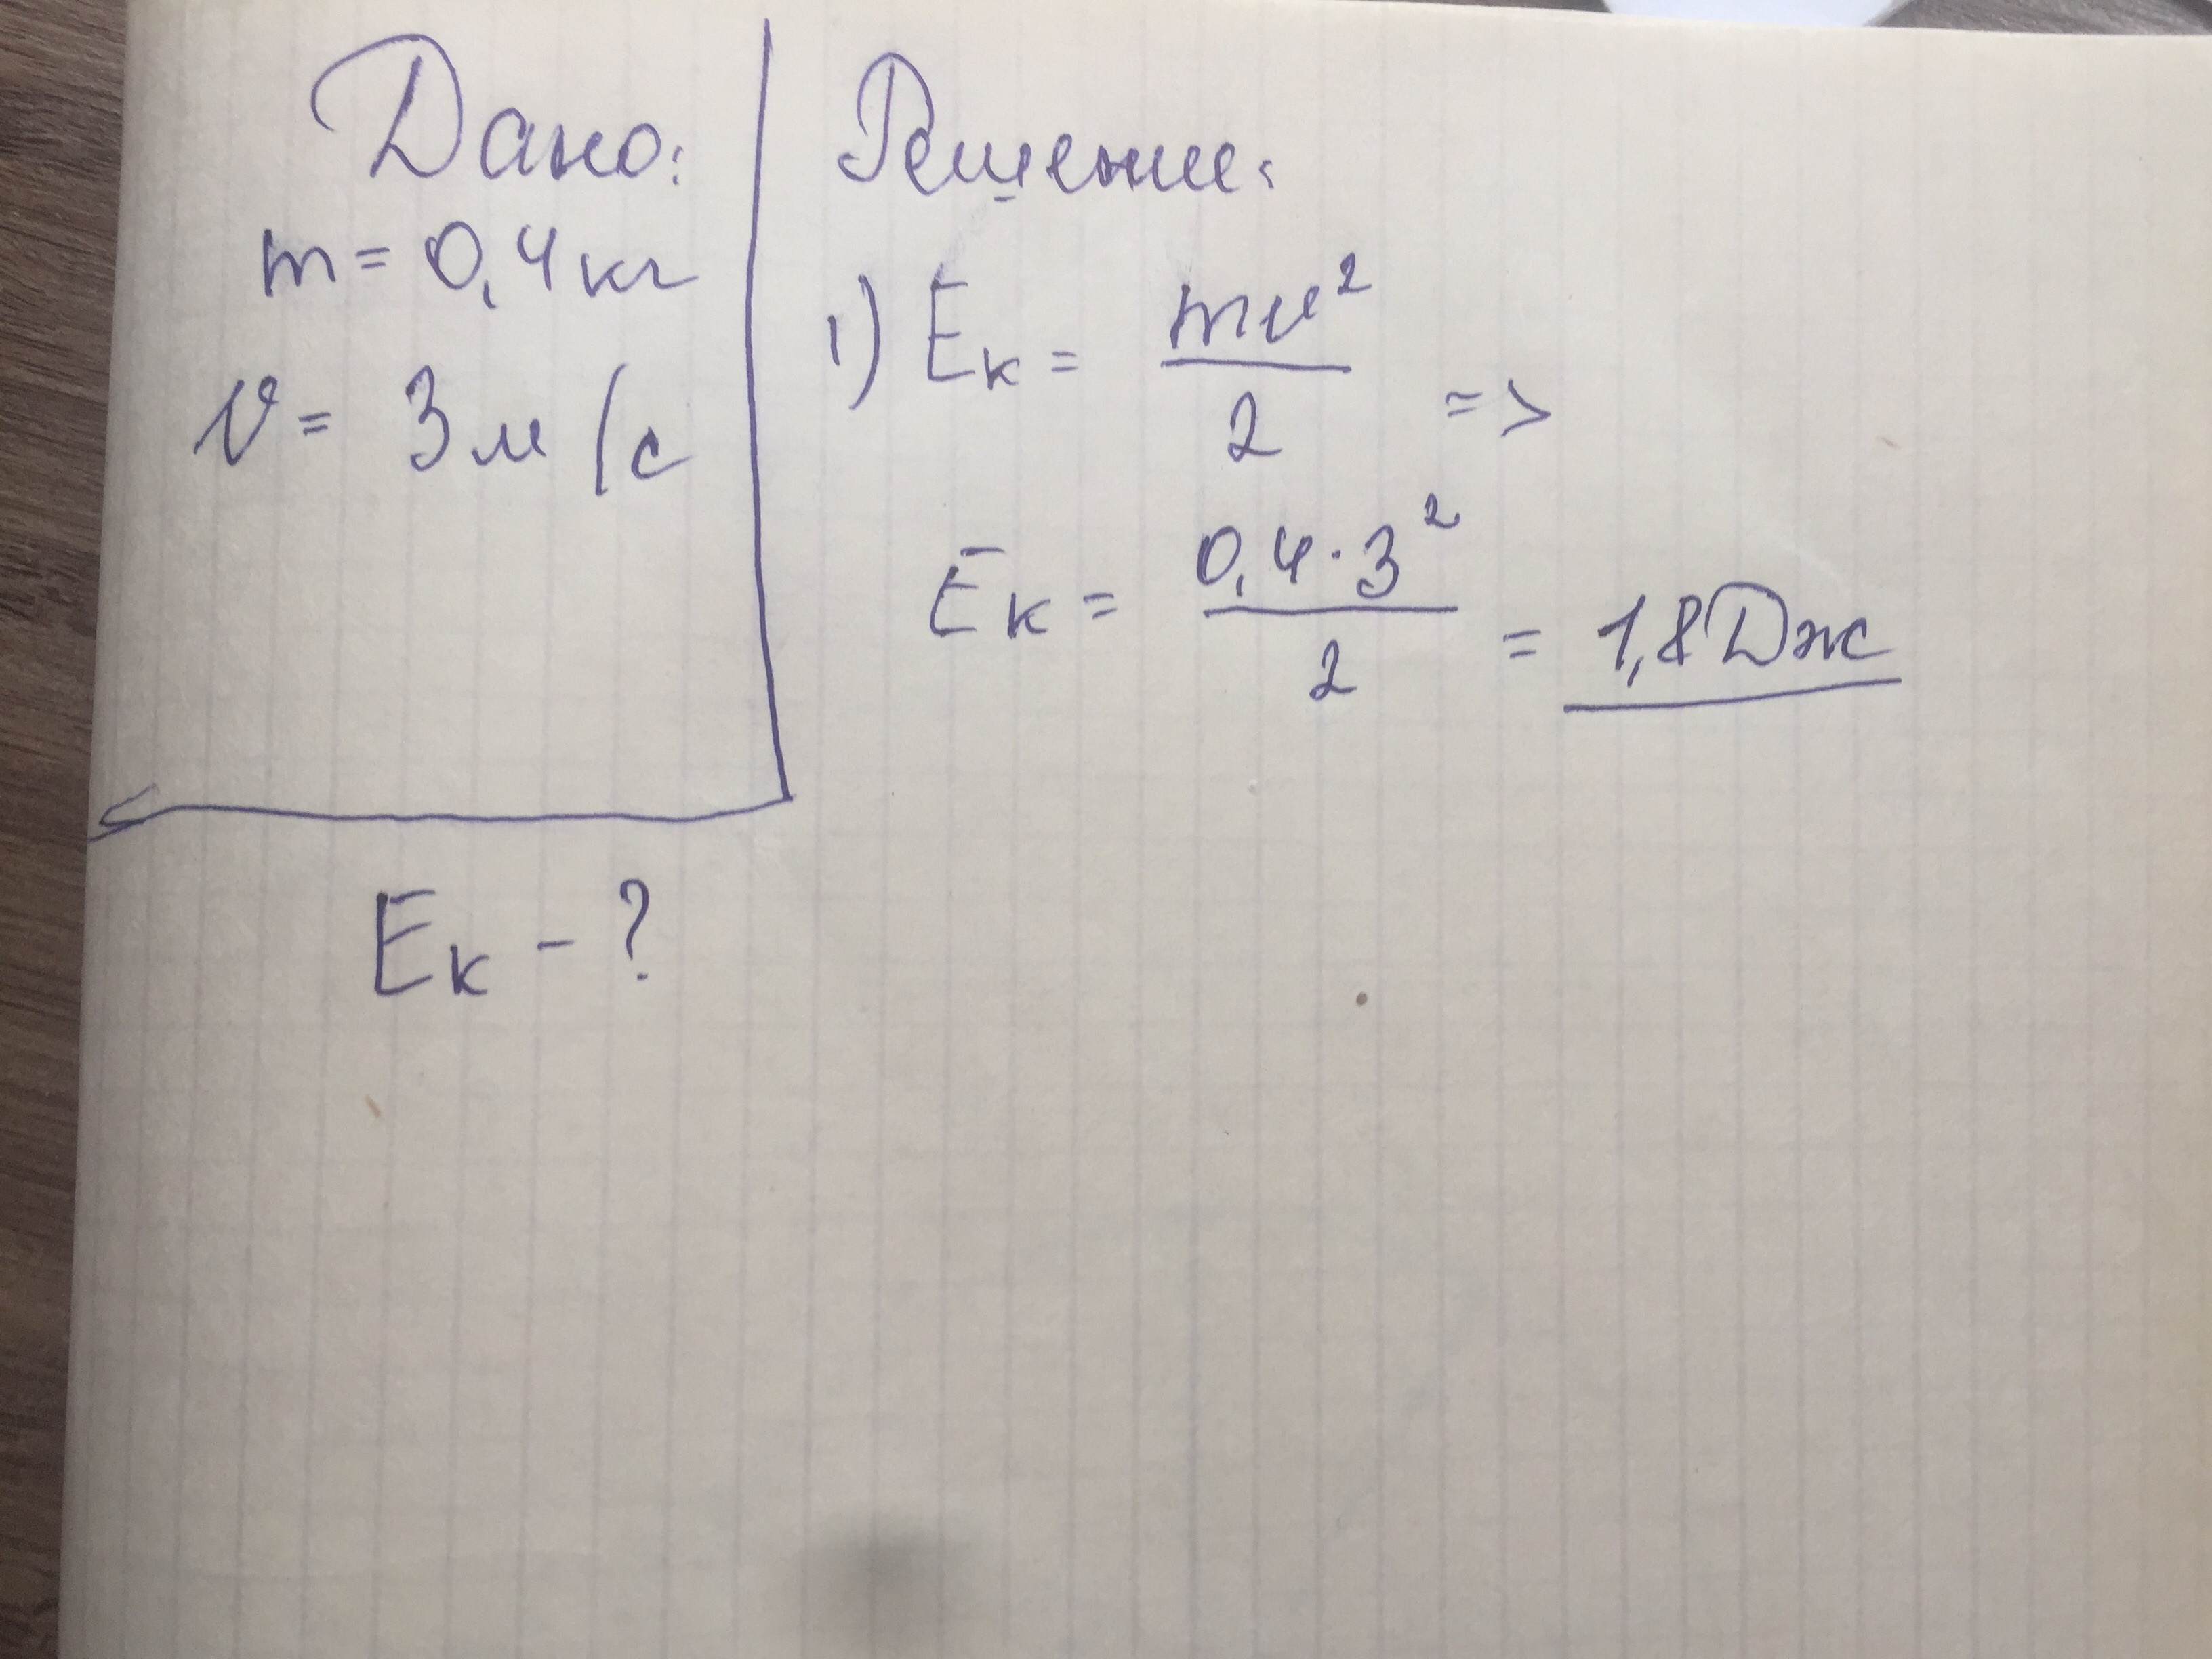 Дано:
m = 0,4 кг
v = 3 м/с
Eк - ?
Решение:
1) Eк = mv²/2 =>
Eк = 0,4 · 3²/2 = 1,8 Дж